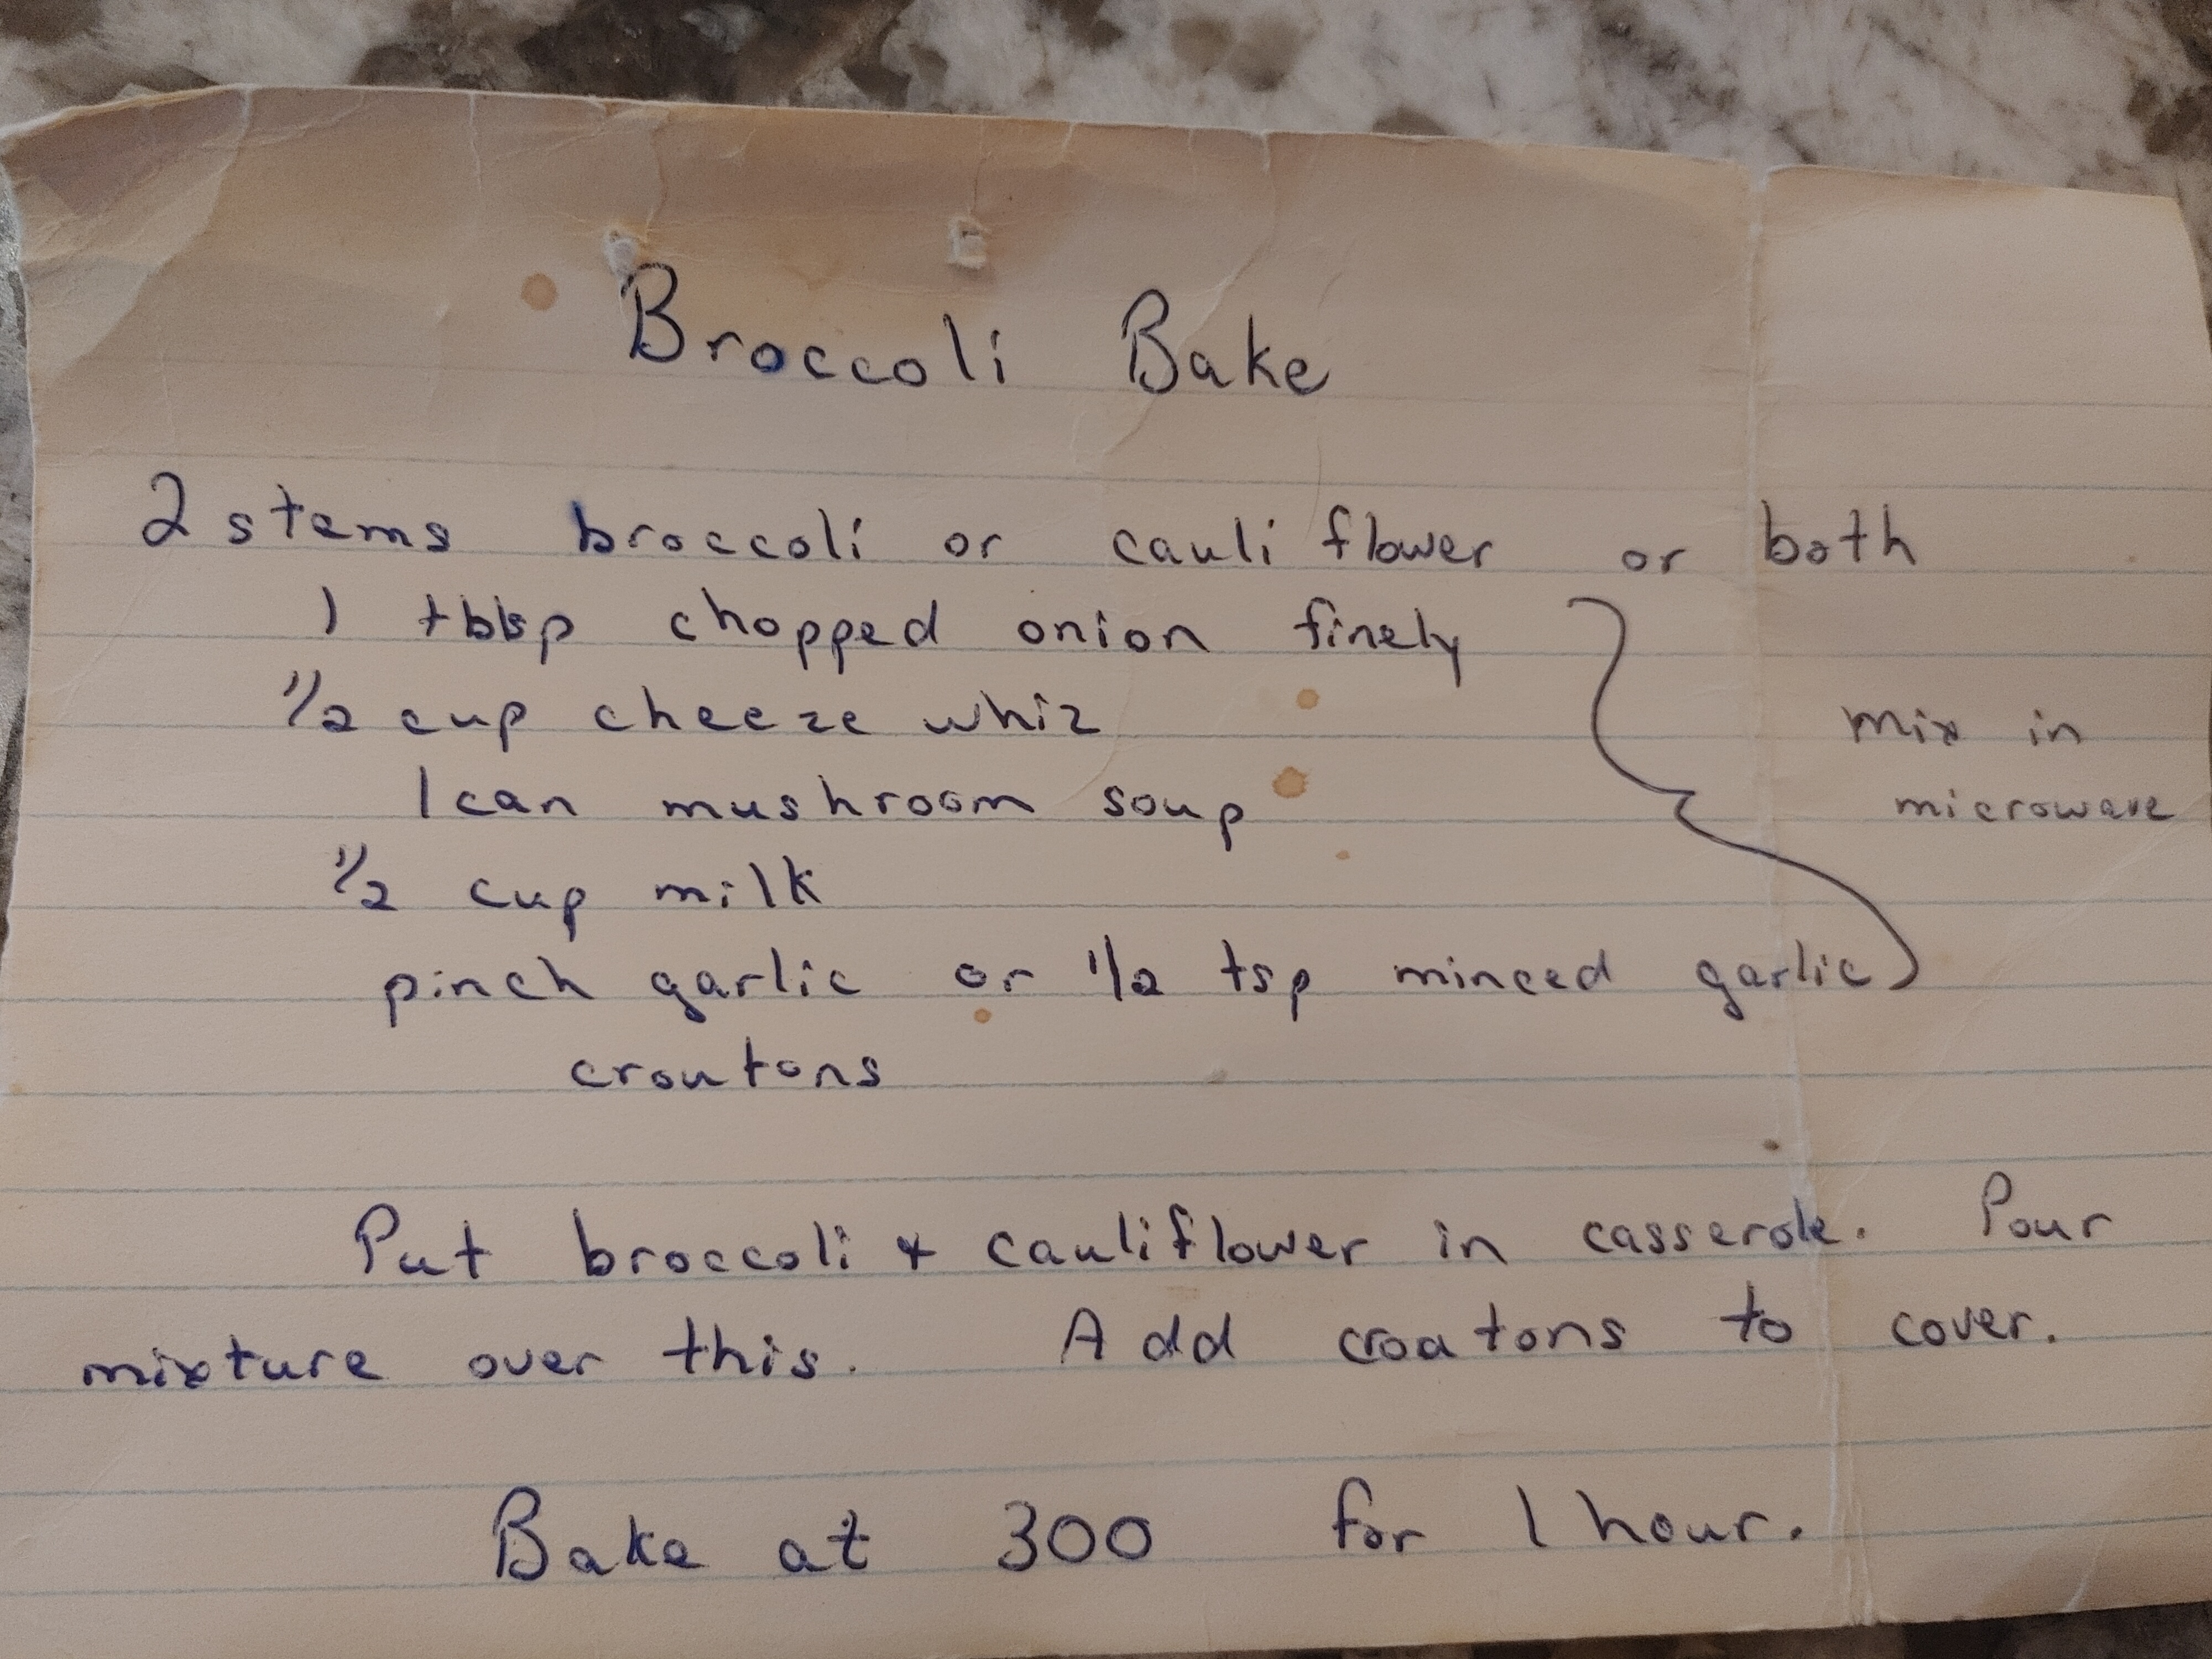 Broccoli Bake
2 stems broccoli or cauliflower or both
1 tbsp chopped onion finely
1/2 cup cheeze whiz
1 can mushroom soup
mix in
microwave
1/2 cup milk
pinch garlic or 1/2 tsp minced garlic
croutons
Put broccoli & cauliflower in casserole. Pour
mixture over this. Add croutons to cover.
Bake at 300 for 1 hour.